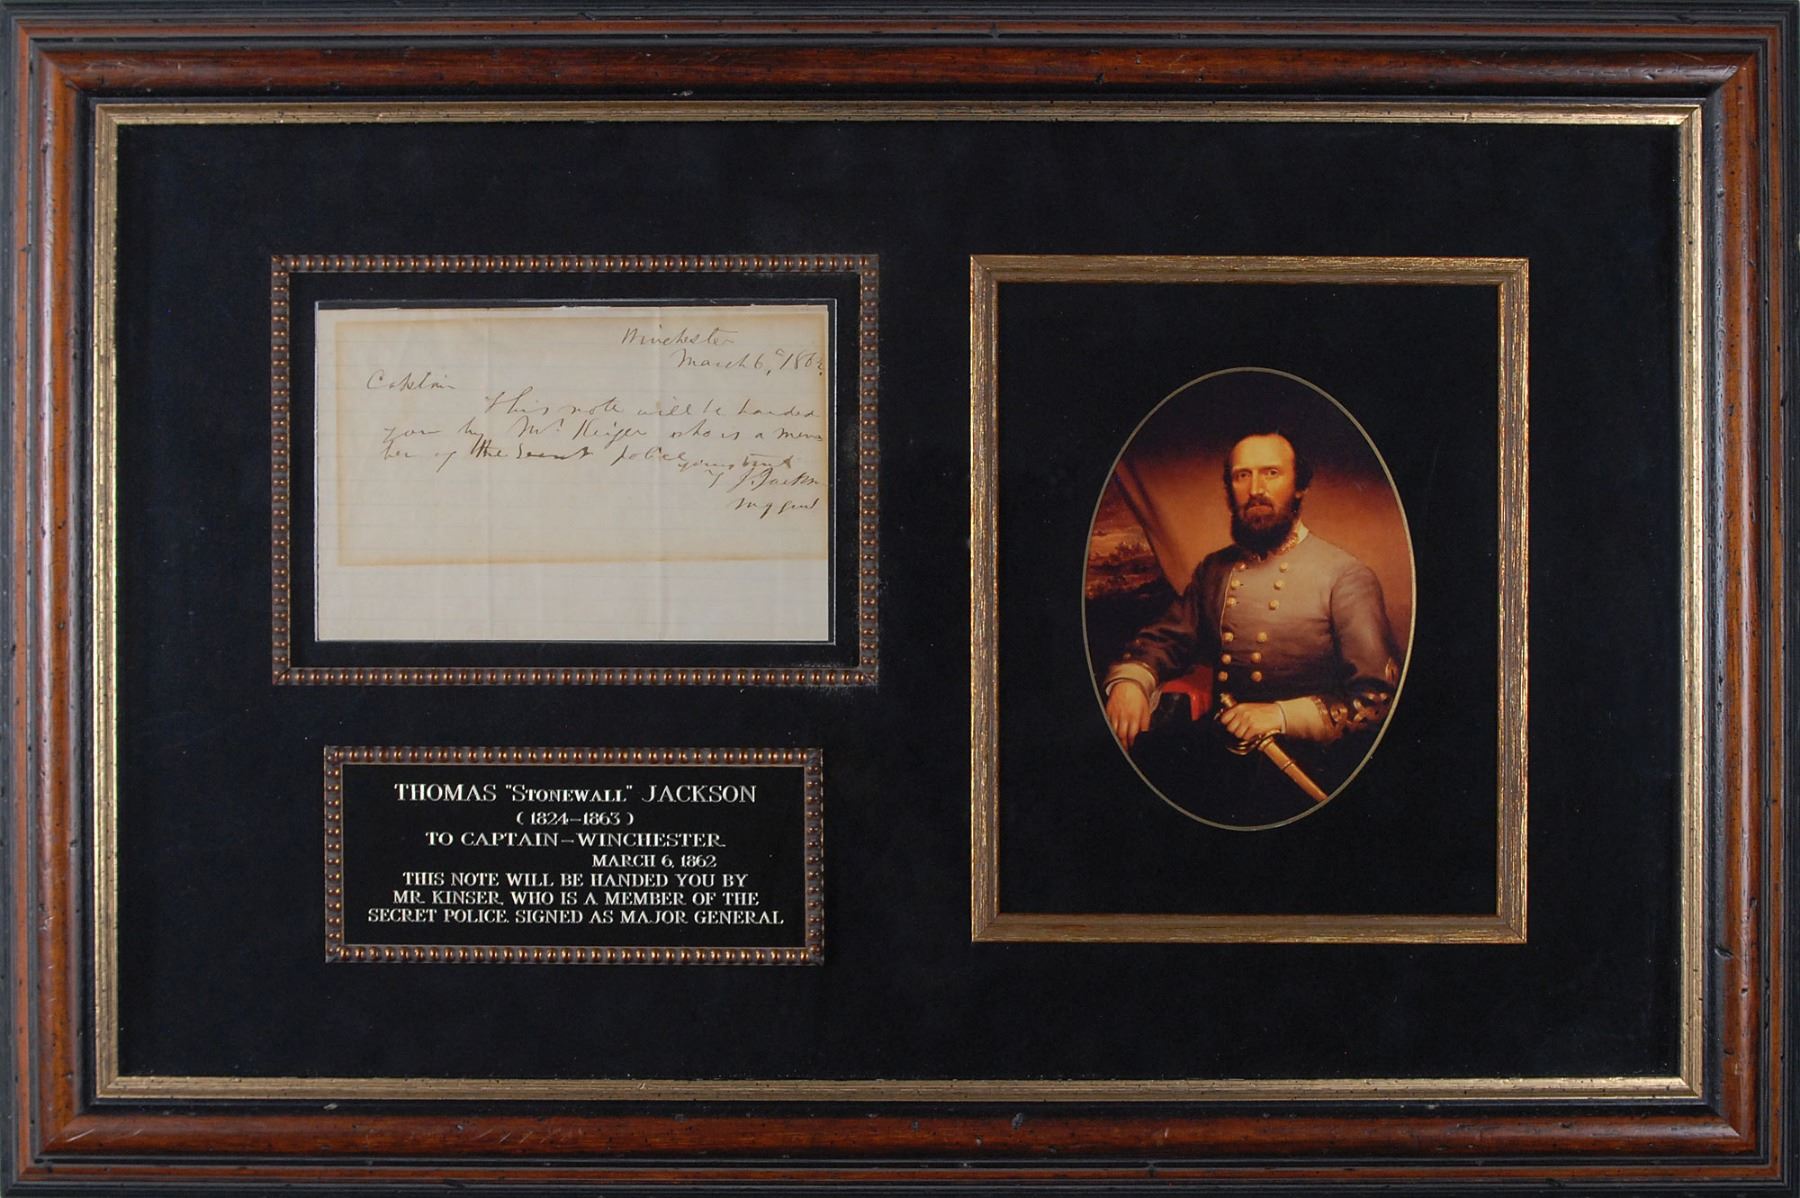 Winchester
March 6th, 1862.
Captain
This note will be handed
you by Mr. Keiger who is a mem
ber of the Secret police
yours truly
T. J. Jackson
Maj Genl
THOMAS "STONEWALL" JACKSON
(1824-1863)
TO CAPTAIN-WINCHESTER.
MARCH 6, 1862
THIS NOTE WILL BE HANDED YOU BY
MR. KINSER, WHO IS A MEMBER OF THE
SECRET POLICE. SIGNED AS MAJOR GENERAL